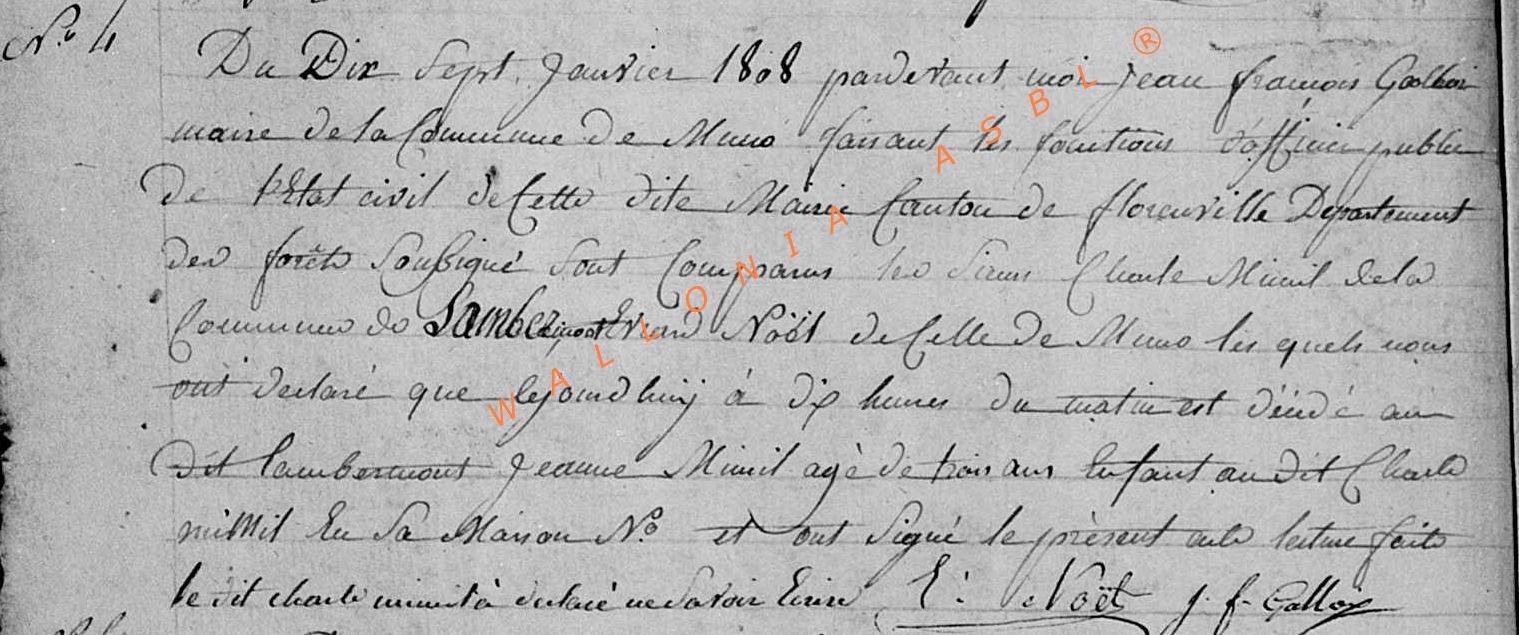 N.o 4
Du Dix Sept Janvier 1808 pardevant moi Jean francois
maire de la Commune de Muno faisant les fonctions d'officier public
de l'Etat civil de Cette dite Mairie Canton de florenville Departement
des forêts Soussigné Sont Comparus les Sieurs Charle Mimil de la
Commune de Lambermont Noël de Celle de Muno les quels nous
ont declaré que lejourdhuÿ à dix heures du matin est décédé au
dit lambermont Jeanne Mimil agé de trois ans Enfant au dit Charle
mimil En Sa Maison N.o et ont Signé le présent acte lecture faite
le dit charle à declaré ne Savoir Ecrire E: Noël J. f. Galloy
WALLONIA ASBL ®